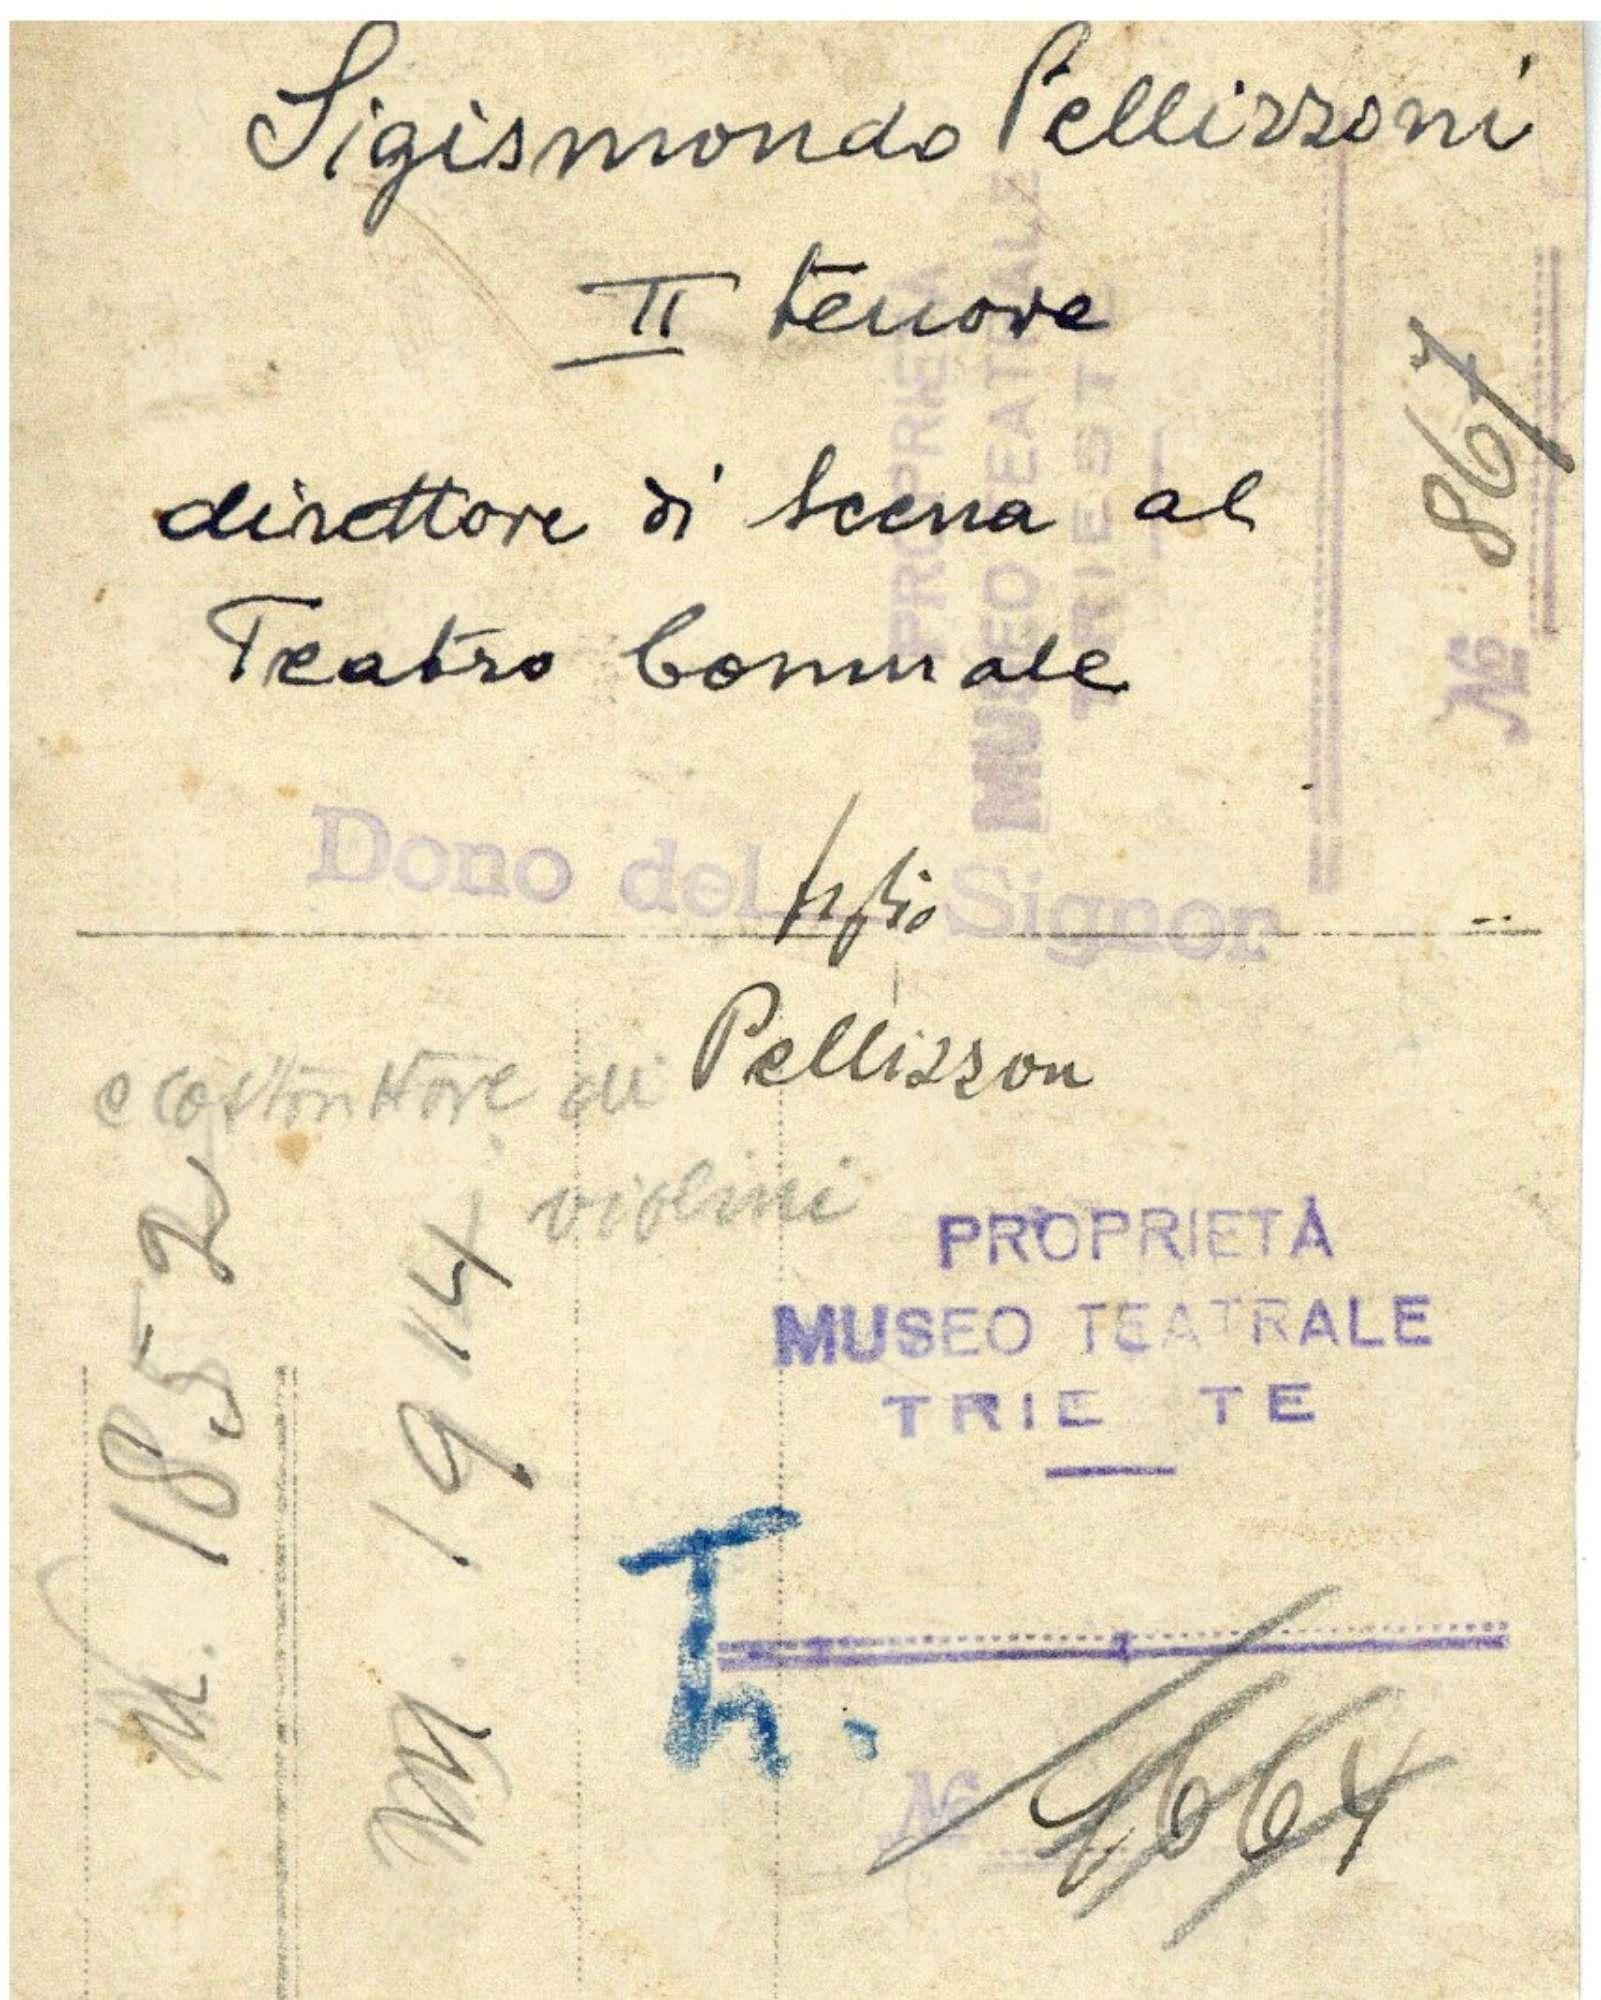 Sigismondo Pellizzoni
II tenore
direttore di scena al
Teatro Comunale
PROPRIETÀ
MUSEO TEATRALE
TRIESTE
№ 867
Dono del figlio Signor
Pellizzon
e costruttore di
violini
N. 1852
M. 1914
PROPRIETÀ
MUSEO TEATRALE
TRIE TE
Tn.
№ 1664